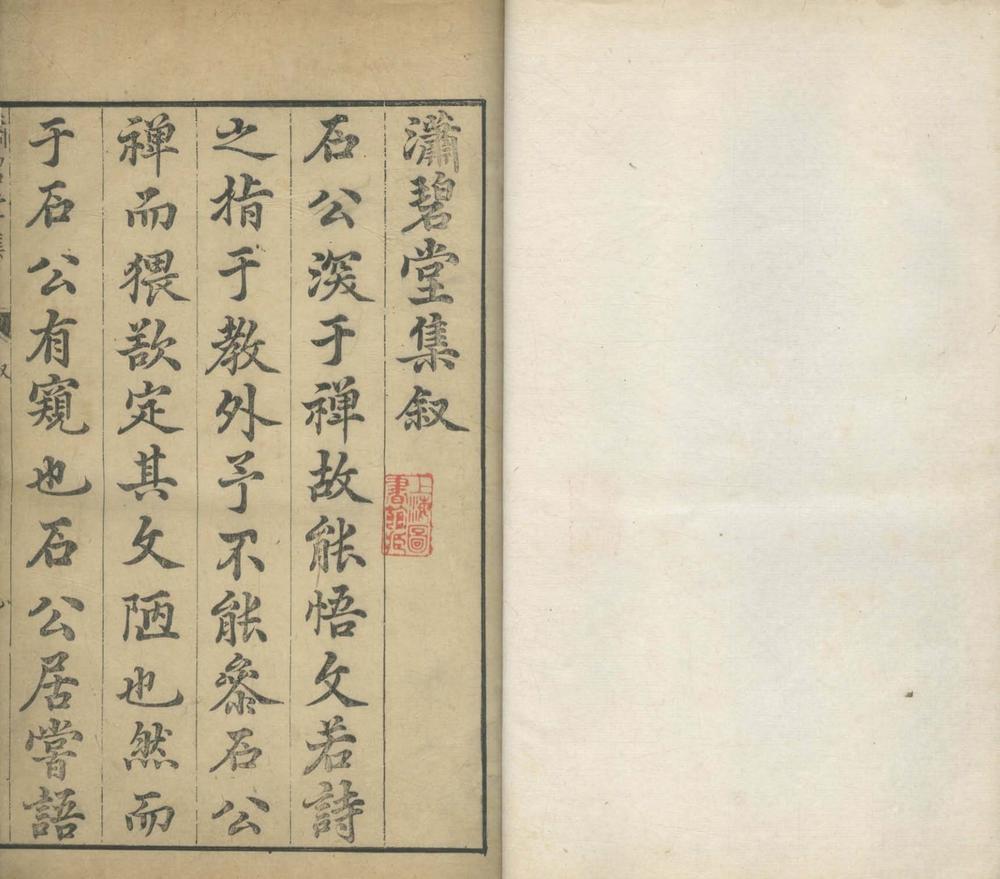 瀟碧堂集叙
石公深于禅故能悟文若詩
之指于教外予不能叅石公
禅而猥欲定其文陋也然而
于石公有窺也石公居嘗語
上海圖書館藏